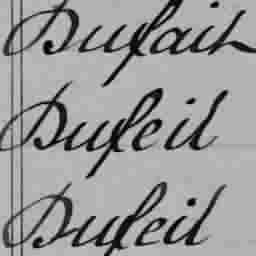 Dufait
Dufeil
Dufeil